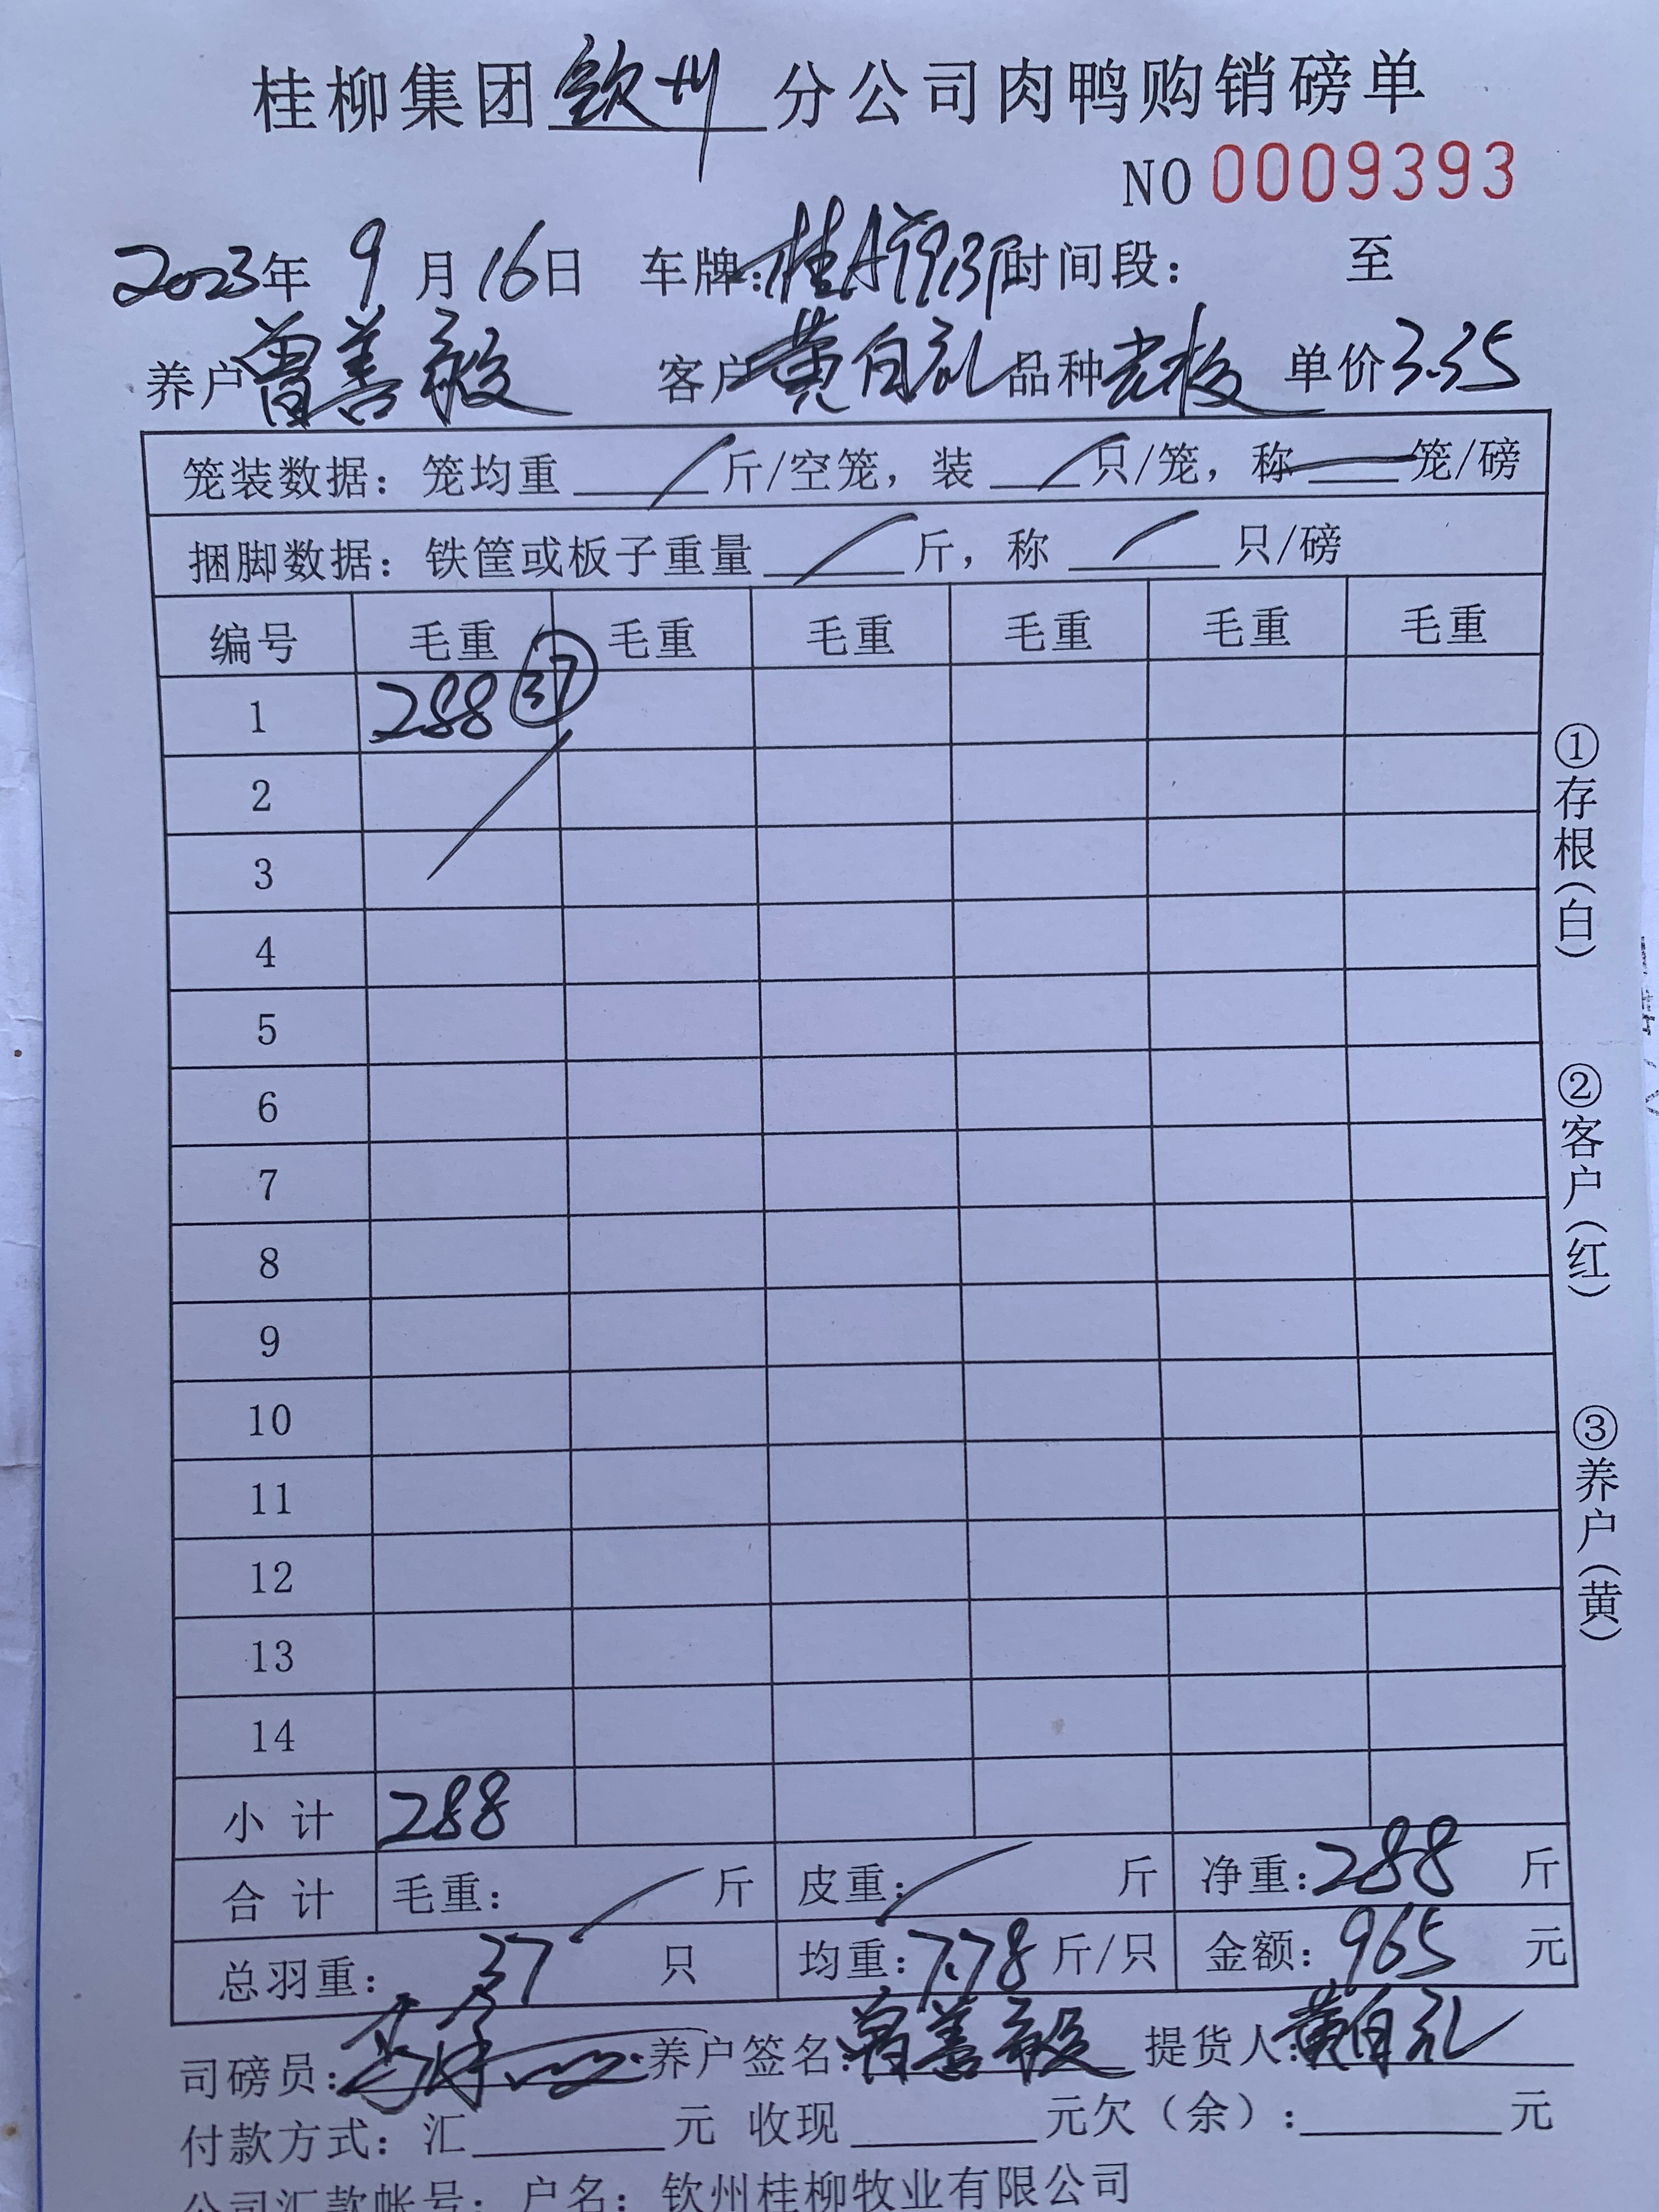 桂柳集团钦州分公司肉鸭购销磅单
NO 0009393
2023年 9 月 16日 车牌: 桂A 时间段: 至
养户曾善敏 客户黄自礼 品种 单价3.35
笼装数据: 笼均重 / 斤/空笼, 装 / 只/笼, 称 — 笼/磅
捆脚数据: 铁筐或板子重量 / 斤, 称 / 只/磅
编号 毛重 毛重 毛重 毛重 毛重 毛重
1 288 37
2
3
4
5
6
7
8
9
10
11
12
13
14
小 计 288
合 计 毛重: / 斤 皮重: / 斤 净重: 288 斤
总羽重: 37 只 均重: 7.78 斤/只 金额: 965 元
司磅员: 养户签名: 曾善敏 提货人: 黄自礼
付款方式: 汇 元 收现 元欠(余): 元
公司汇款帐号: 户名: 钦州桂柳牧业有限公司
①存根(白)
②客户(红)
③养户(黄)